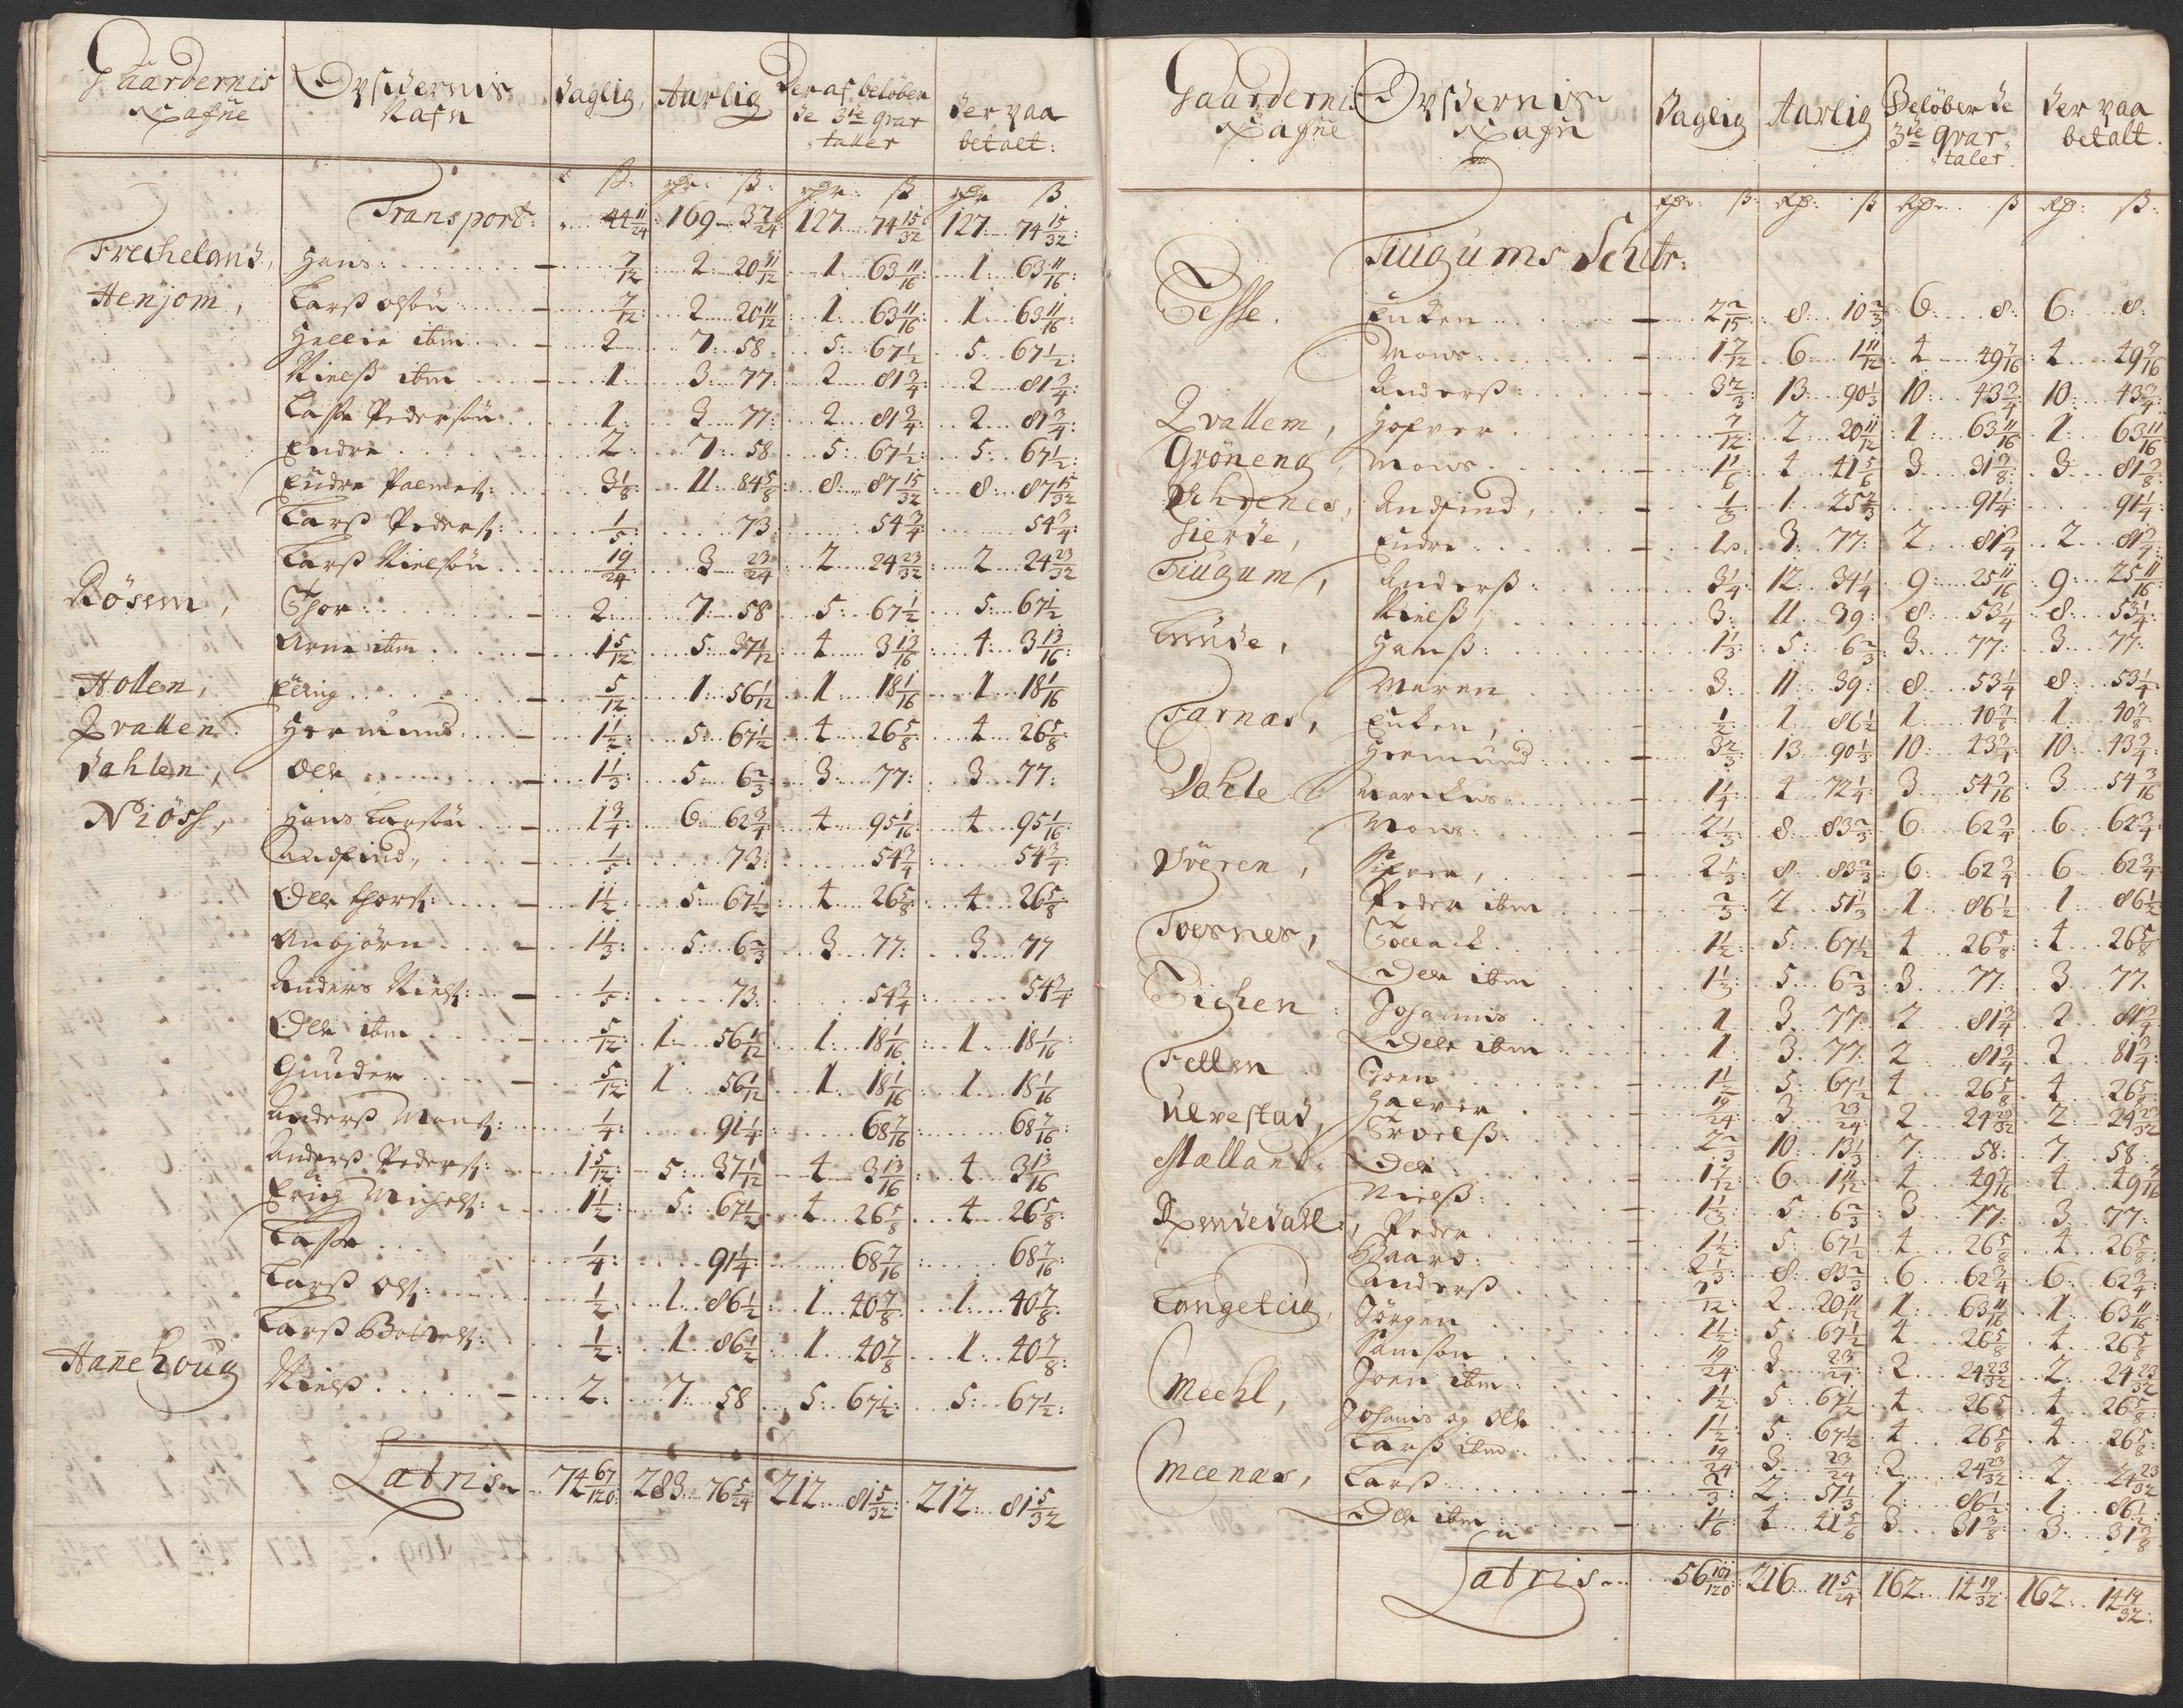 Gaardernis Nafne | Opsidernis Nafn | Daglig | Aarlig | Der af belöber de 3de qvartaller | Der paa betalt:
ß: | rdr: ß: | rdr: ß | rdr ß
Transport: 44 11/24: 169 – 37/24 127 74 15/32 127 74 15/32:
Frecheland, Hans: 7/12 2 20 11/12 1 63 11/16: 1 63 11/16:
Henjom, Larß olsön 7/12: 2 20 11/12 1 63 11/16 1 63 11/16:
Hellie ibm 2 7: 58 5: 67 1/2 5 67 1/2:
Nielß ibm 1 3 77: 2 81 3/4: 2 81 3/4:
Lasse Pedersön 1: 3 77: 2 81 3/4 2 81 3/4:
Endre 2: 7: 58 5: 67 1/2: 5: 67 1/2:
Endre Palmest: 3 1/8: 11: 84 5/8: 8: 87 15/32: 8: 87 15/32
Larß Peders: 1/5: 73: 54 3/4: 54 3/4:
Larß Nielsön 19/24: 3 23/24 2 24 23/32: 2 24 23/32
Rösem, Thor: 2: 7: 58 5: 67 1/2 5: 67 1/2
Arne ibm 1 5/12: 5: 37 1/12: 4 3 13/16 4: 3 13/16:
Hollen, Erig 5/12 1: 56 1/12 1 18 1/16 1 18 1/16
Qvallen: Hermund 1 1/2: 5: 67 1/2 4 26 5/8 4 26 5/8:
Dahlen, Ole 1 1/3: 5: 6 2/3: 3: 77: 3 77:
Niöss, Hans Larsön 1 3/4: 6 62 3/4 4 95 1/16: 4 95 1/16:
Audfind, 1/5: 73: 54 3/4: 54 3/4:
Ole thors: 1 1/2: 5: 67 1/2: 4 26 5/8 4 26 5/8:
Anbjörn 1 1/3: 5: 6 2/3 3 77: 3 77
Anders Niels: 1/5: 73: 54 3/4: 54 3/4:
Ole ibm 5/12: 1: 56 1/12 1: 18 1/16: 1 18 1/16:
Gunder 5/12: 1 56 1/12 1 18 1/16 1 18 1/16
Anderß Mons: 1/4: 91 1/4: 68 7/16: 68 7/16:
Anderß Peders: 1 5/12: 5: 37 1/12 4 3 13/16 4 3 13/16
Erig Michels: 1 1/2: 5: 67 1/2 4 26 5/8 4 26 5/8:
Lasse 1/4: 91 1/4: 68 7/16: 68 7/16:
Larß Ols: 1/2: 1: 86 1/2: 1: 40 7/8: 1: 40 7/8:
Larß Bottels: 1/2: 1 86 1/2 1 40 7/8 1: 40 7/8:
Hanehoug Nielß 2: 7: 58 5: 67 1/2: 5: 67 1/2:
Latris 74 67/120: 283 76 5/24 212: 81 5/32: 212: 81 5/32
Gaardernis Nafne | Opsidernis Nafn | Daglig | Aarlig | Belöber de 3de qvartaler | Der paa betalt.
rdr: ß: | rdr: ß | rdr: ß | rdr: ß:
Tiugums Schibr:
Esse. Enken 2 2/15: 8 10 2/3 6: 8: 6: 8:
Mons: 1 7/12 6 1 11/12 4 49 7/16 4 49 7/16
Anderß: 3 2/3: 13: 90 1/3 10: 43 3/4 10: 43 3/4:
Qvallem, Hofver 7/12: 2 20 11/12 1: 63 11/16 1: 63 11/16
Gröneng Mons 1 1/6: 4 41 5/6 3 31 3/8: 3: 31 3/8:
Öhrenes, Audfind, 1/3: 1: 25 2/3 91 1/4: 91 1/4:
Hierde, Endre 1: 3: 77: 2 81 3/4 2 81 3/4:
Tiugum, Anderß: 3 1/4: 12: 34 1/4 9: 25 11/16 9: 25 11/16
Nielß, 3: 11 39: 8: 53 1/4 8: 53 1/4:
Lunde, Hanß: 1 1/3: 5: 6 2/3: 3: 77: 3: 77:
Maren 3: 11 39: 8 53 1/4 8: 53 1/4
Farnæs, Enken, 1/2: 1 86 1/2 1 40 7/8 1: 40 7/8
Hermund 3 2/3: 13: 90 1/3 10: 43 3/4: 10: 43 3/4:
Dahle Marckus 1 1/4: 4 72 1/4: 3 54 3/16 3 54 3/16
Mons: 2 1/3: 8 83 2/3: 6 62 3/4 6 62 3/4:
Svëren, Sifver, 2 1/3: 8 83 2/3 6 62 3/4 6 62 3/4
Peder ibm 2/3: 2 51 1/3 1 86 1/2 1 86 1/2
Tvesnes, Tollack 1 1/2: 5 67 1/2 4 26 5/8: 4 26 5/8
Ole ibm 1 1/3: 5 6 2/3 3 77: 3 77:
Eighen: Johannis 1 3: 77: 2 81 3/4 2 81 3/4:
Ole ibm 1: 3: 77: 2 81 3/4: 2 81 3/4:
Fetten Joen 1 1/2: 5: 67 1/2 4 26 5/8 4 26 5/8
Halvor 19/24: 3 23/24: 2 24 23/32 2 24 23/32
Ulvestad, Troelß: 2 2/3 10: 13 1/3 7: 58: 7: 58
Mælland: Ole 1 7/12 6: 1 11/12 4 49 7/16 4 49 7/16
Nielß: 1 1/3: 5: 6 2/3: 3 77: 3: 77:
Rendedall, Peder 1 1/2: 5: 67 1/2 4 26 5/8: 4 26 5/8:
Baard: 2 1/3: 8: 83 2/3 6 62 3/4 6 62 3/4:
Anderß 7/12: 2 20 11/12 1: 63 11/16 1: 63 11/16
Langeteig, Jörgen 1 1/2: 5: 67 1/2 4 26 5/8 4 26 5/8
Samson 19/24: 3 23/24: 2 24 23/32 2: 24 23/32
Meehl, Joen ibm: 1 1/2: 5: 67 1/2 4 26 5/8 4 26 5/8:
Johanis og Ole 1 1/2: 5: 67 1/2 4 26 5/8 4 26 5/8:
Larß ibm 19/24 3 23/24 2 24 23/32 2 24 23/32
Meenæs, Larß 2/3: 2: 51 1/3 1: 86 1/2: 1: 86 1/2
Ole ibm 1 1/6: 4 41 5/6 3 31 3/8: 3: 31 3/8
Latris 56 101/120: 216 11 5/24 162 14 19/32: 162: 14 19/32: